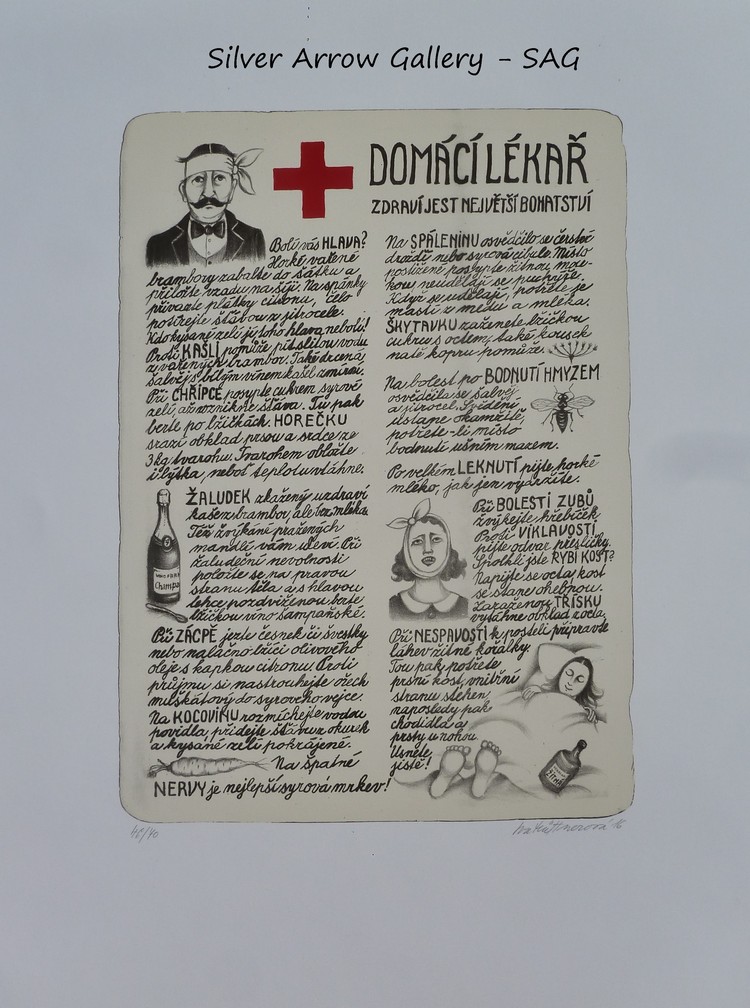 Silver Arrow Gallery - SAG
DOMÁCÍ LÉKAŘ
ZDRAVÍ JEST NEJVĚTŠÍ BOHATSTVÍ
Bolí vás HLAVA?
Horké vařené
brambory zabalte do šátku a
přiložte vzadu na šíji. Na spánky
přivažte plátky citronu, čelo
potírejte šťávou z jitrocele.
Kdo kysané zelí jí, toho hlava nebolí!
Proti KAŠLI pomůže pít slitou vodu
z vařených brambor. Také drcená
šalvěj s bílým vínem kašel zmírní.
Při CHŘIPCE posypte cukrem syrové
zelí, až vznikne šťáva. Tu pak
berte po lžičkách. HOREČKU
srazí obklad prsou a srdce ze
3 kg tvarohu. Tvarohem obložte
i lýtka, neboť teplotu vtáhne.
ŽALUDEK zkažený uzdraví
kaše z brambor, ale bez mléka.
Též žvýkání pražených
mandlí vám uleví. Při
žaludeční nevolnosti
položte se na pravou
stranu těla a s hlavou
lehce pozdviženou berte
lžičkou víno šampaňské.
Při ZÁCPĚ jezte česnek či švestky
nebo nalačno lžíci olivového
oleje s kapkou citronu. Proti
průjmu si nastrouhejte ořech
muškátový do syrového vejce.
Na KOCOVINU rozmíchejte vodou
povidla, přidejte šťávu z okurek
a kysané zelí pokrájené.
Na špatné
NERVY je nejlepší syrová mrkev!
Na SPÁLENINU osvědčilo se čerstvé
droždí nebo syrová cibule. Místo
postižené posypte žitnou mou-
kou, neudělají se puchýře.
Když se udělají, potřete je
mastí z medu a mléka.
ŠKYTAVKU zaženete lžičkou
cukru s octem, také kousek
natě kopru pomůže.
Na bolest po BODNUTÍ HMYZEM
osvědčila se šalvěj
a jitrocel. Svědění
ustane okamžitě,
potřete-li místo
bodnutí ušním mazem.
Po velkém LEKNUTÍ pijte horké
mléko, jak jen vydržíte.
Při BOLESTI ZUBŮ
žvýkejte hřebíček.
Proti VIKLAVOSTI
pijte odvar přesličky.
Spolkli jste RYBÍ KOST?
Napijte se octa, kost
se stane ohebnou.
Zaraženou TŘÍSKU
vytáhne obklad z octa.
Při NESPAVOSTI k posteli připravte
láhev žitné kořalky.
Tou pak potřete
prsní kost, vnitřní
stranu stehen,
naposledy pak
chodidla a
prsty u nohou.
Usnete
jistě!
Champa
ŽITNÁ